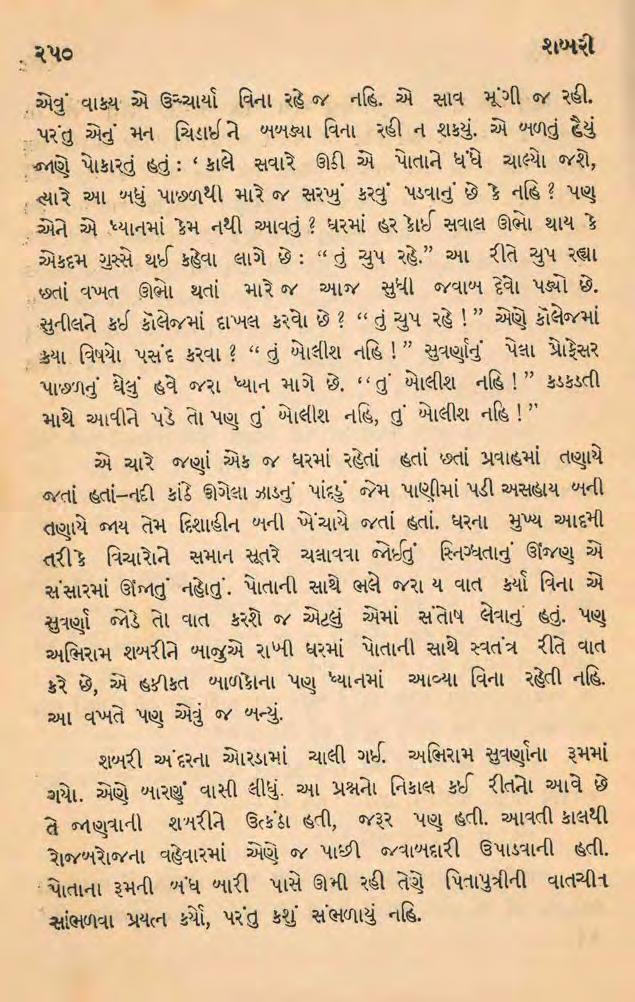 ૨૫૦ શબરી
એવું વાક્ય એ ઉચ્ચાર્યા વિના રહે જ નહિ. એ સાવ મૂંગી જ રહી.
પરંતુ એનું મન ચિડાઈને બબડ્યા વિના રહી ન શકયું. એ બળતું હૈયું
જાણે પોકારતું હતું : ‘ કાલે સવારે ઊઠી એ પોતાને ધંધે ચાલ્યો જશે,
ત્યારે આ બધું પાછળથી મારે જ સરખું કરવું પડવાનું છે કે નહિ ? પણ
એને એ ધ્યાનમાં કેમ નથી આવતું ? ઘરમાં હર કોઈ સવાલ ઊભો થાય કે
એકદમ ગુસ્સે થઈ કહેવા લાગે છે : “ તું ચુપ રહે.” આ રીતે ચુપ રહ્યા
છતાં વખત ઊભો થતાં મારે જ આજ સુધી જવાબ દેવો પડ્યો છે.
સુનીલને કઈ કૉલેજમાં દાખલ કરવો છે ? “ તું ચુપ રહે ! ” એણે કૉલેજમાં
કયા વિષયો પસંદ કરવા ? “ તું બોલીશ નહિ ! ” સુવર્ણાનું પેલા પ્રોફેસર
પાછળનું ઘેલું હવે જરા ધ્યાન માગે છે. “તું બોલીશ નહિ ! ” કડકડતી
માથે આવીને પડે તો પણ તું બોલીશ નહિ, તું બોલીશ નહિ ! ”
એ ચારે જણાં એક જ ઘરમાં રહેતાં હતાં છતાં પ્રવાહમાં તણાયે
જતાં હતાં–નદી કાંઠે ઊગેલા ઝાડનું પાંદડું જેમ પાણીમાં પડી અસહાય બની
તણાયે જાય તેમ દિશાહીન બની ખેંચાયે જતાં હતાં. ઘરના મુખ્ય આદમી
તરીકે વિચારોને સમાન સૂતરે ચલાવવા જોઈતું સ્નિગ્ધતાનું ઊંજણ એ
સંસારમાં ઊંજાતું નહોતું. પોતાની સાથે ભલે જરા ય વાત કર્યા વિના એ
સુવર્ણા જોડે તો વાત કરશે જ એટલું એમાં સંતોષ લેવાનું હતું. પણ
અભિરામ શબરીને બાજુએ રાખી ઘરમાં પોતાની સાથે સ્વતંત્ર રીતે વાત
કરે છે, એ હકીકત બાળકોના પણ ધ્યાનમાં આવ્યા વિના રહેતી નહિ.
આ વખતે પણ એવું જ બન્યું.
શબરી અંદરના ઓરડામાં ચાલી ગઈ. અભિરામ સુવર્ણાના રૂમમાં
ગયો. એણે બારણું વાસી લીધું. આ પ્રશ્નનો નિકાલ કઈ રીતનો આવે છે
તે જાણવાની શબરીને ઉત્કંઠા હતી, જરૂર પણ હતી. આવતી કાલથી
રોજબરોજના વહેવારમાં એણે જ પાછી જવાબદારી ઉપાડવાની હતી.
પોતાના રૂમની બંધ બારી પાસે ઊભી રહી તેણે પિતાપુત્રીની વાતચીત
સાંભળવા પ્રયત્ન કર્યો, પરંતુ કશું સંભળાયું નહિ.